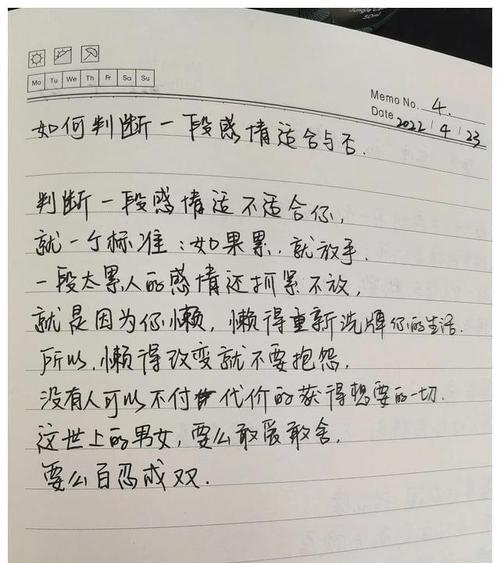 Mo Tu We Th Fr Sa Su
Memo No. 4.
Date 2022 / 4 / 23
如何判断一段感情适合与否.
判断一段感情适不适合你,
就一个标准:如果累,就放手.
一段太累人的感情还抓紧不放,
就是因为你懒,懒得重新洗牌你的生活.
所以,懒得改变就不要抱怨,
没有人可以不付代价的获得想要的一切.
这世上的男女,要么敢爱敢舍,
要么百忍成双.